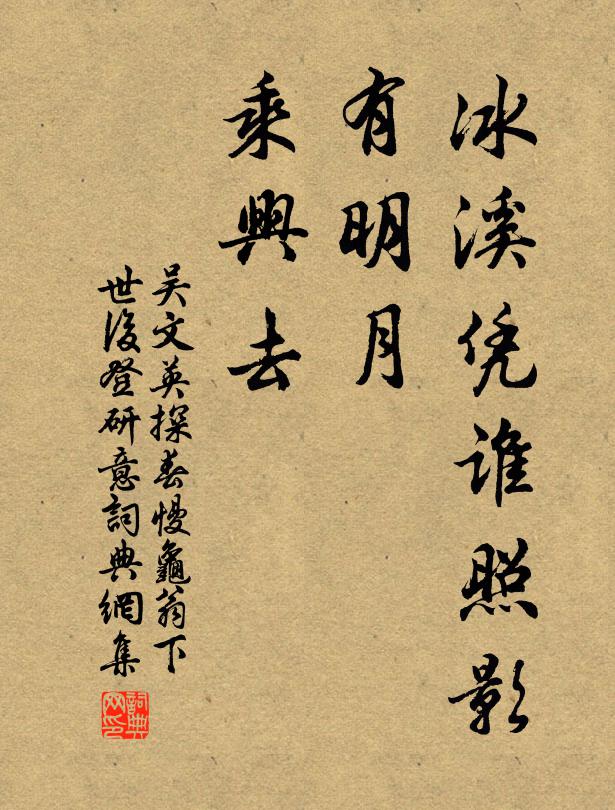 冰溪凭谁照影
有明月
乘興去
吴文英探春慢龜翁下
世後登研意詞典網集
詞典网印